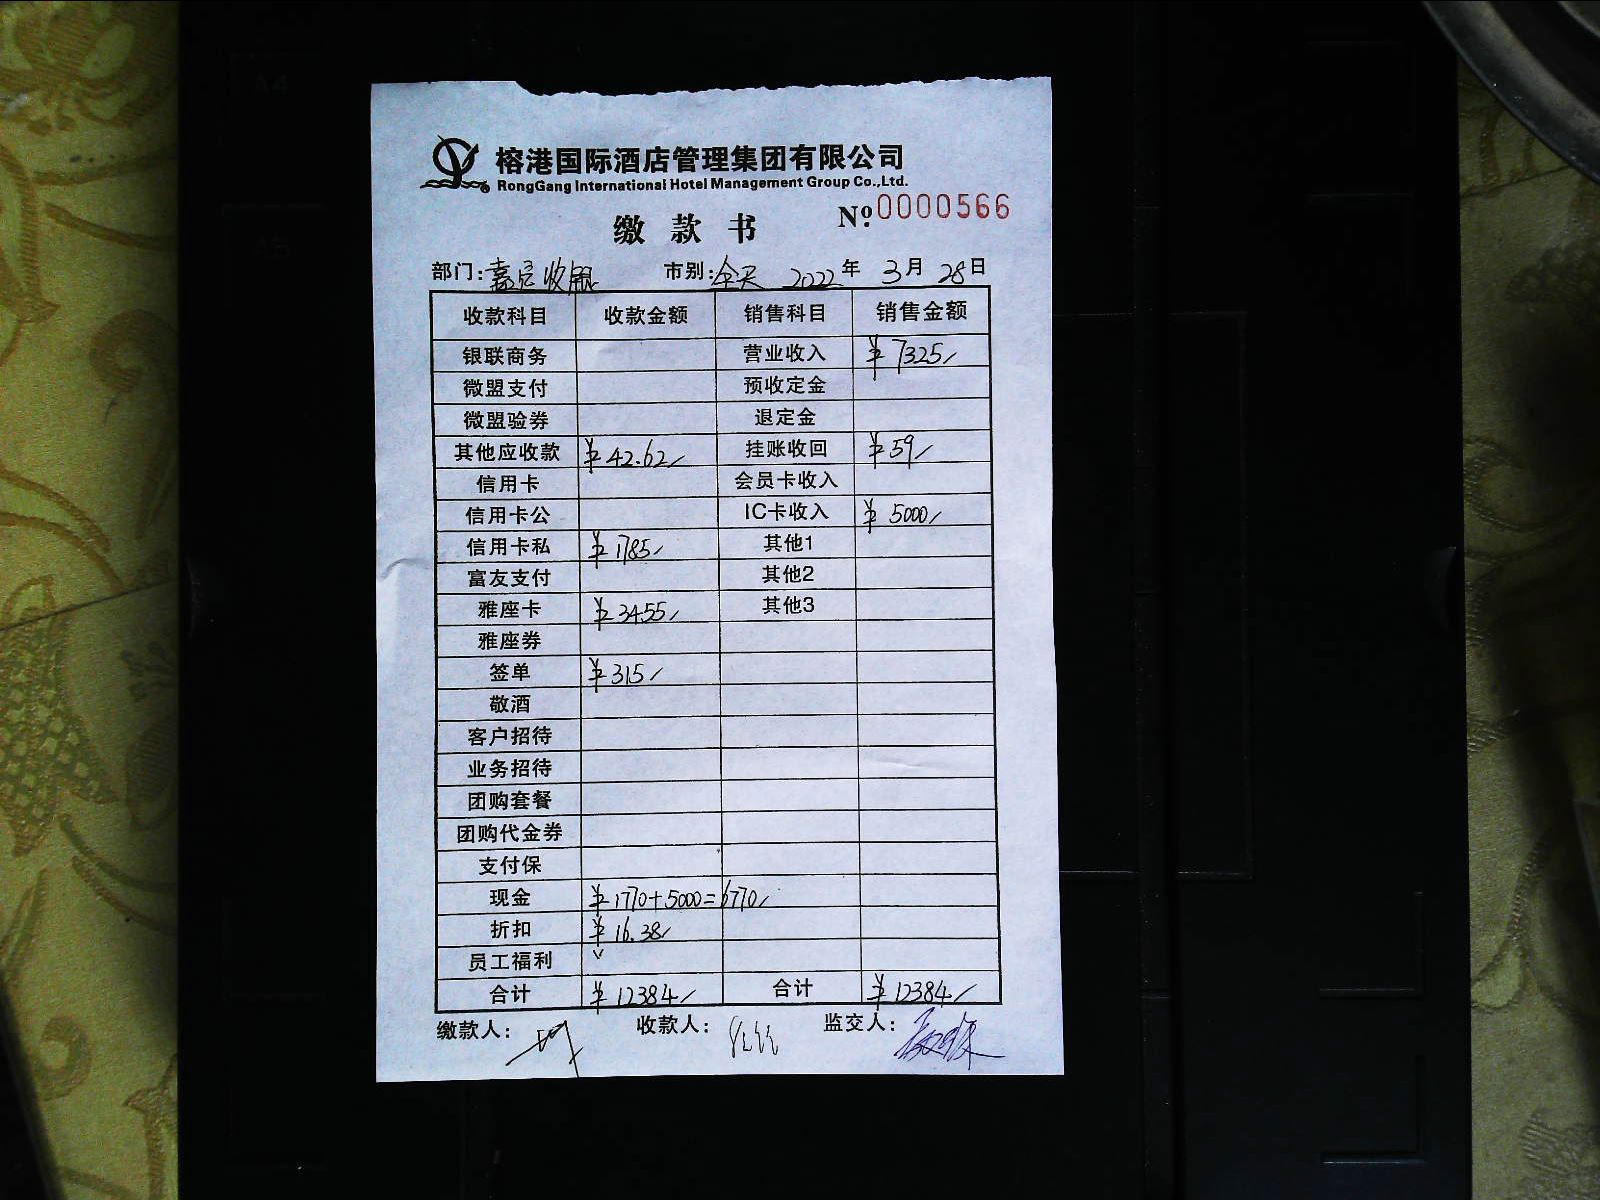 榕港国际酒店管理集团有限公司
RongGang International Hotel Management Group Co.,Ltd.
缴款书 Nº.0000566
部门: 收银 市别:全天 2022年 3月 28日
收款科目 收款金额 销售科目 销售金额
银联商务 营业收入 ¥7325/
微盟支付 预收定金
微盟验券 退定金
其他应收款 ¥42.62/ 挂账收回 ¥59/
信用卡 会员卡收入
信用卡公 IC卡收入 ¥5000/
信用卡私 ¥1785/ 其他1
富友支付 其他2
雅座卡 ¥3455/ 其他3
雅座券
签单 ¥315/
敬酒
客户招待
业务招待
团购套餐
团购代金券
支付保
现金 ¥1770+5000=6770/
折扣 ¥16.38/
员工福利
合计 ¥12384/ 合计 ¥12384/
缴款人: 收款人: 监交人:
A4
A5